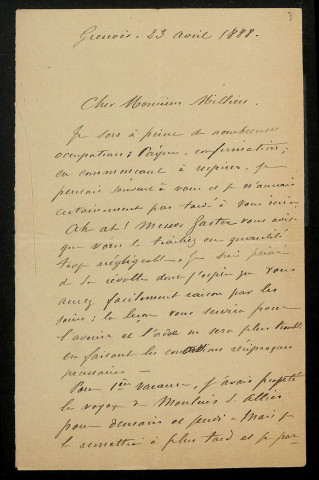 3
Grenois, 23 avril 1888.
Cher Monsieur Millien,
Je sors à peine de nombreuses
occupations; Pâques, confirmation;
en commençant à respirer, je
pensais souvent à vous et je n'aurais
certainement pas tardé à vous écrire
Ah ah! Messer Gaster vous avise
que vous le traitiez en quantité
trop négligeable. Je suis peiné
de sa révolte dont j'espère que vous
aurez facilement raison par les
soins; la leçon vous servira pour
l'avenir et l'ordre ne sera plus troublé
en faisant les concessions réciproques
nécessaires —
Pour 1ères vacances, j'avais projeté
le voyage de Moulins s. Allier
pour demain et jeudi — Mais je
le remettrai à plus tard et je par